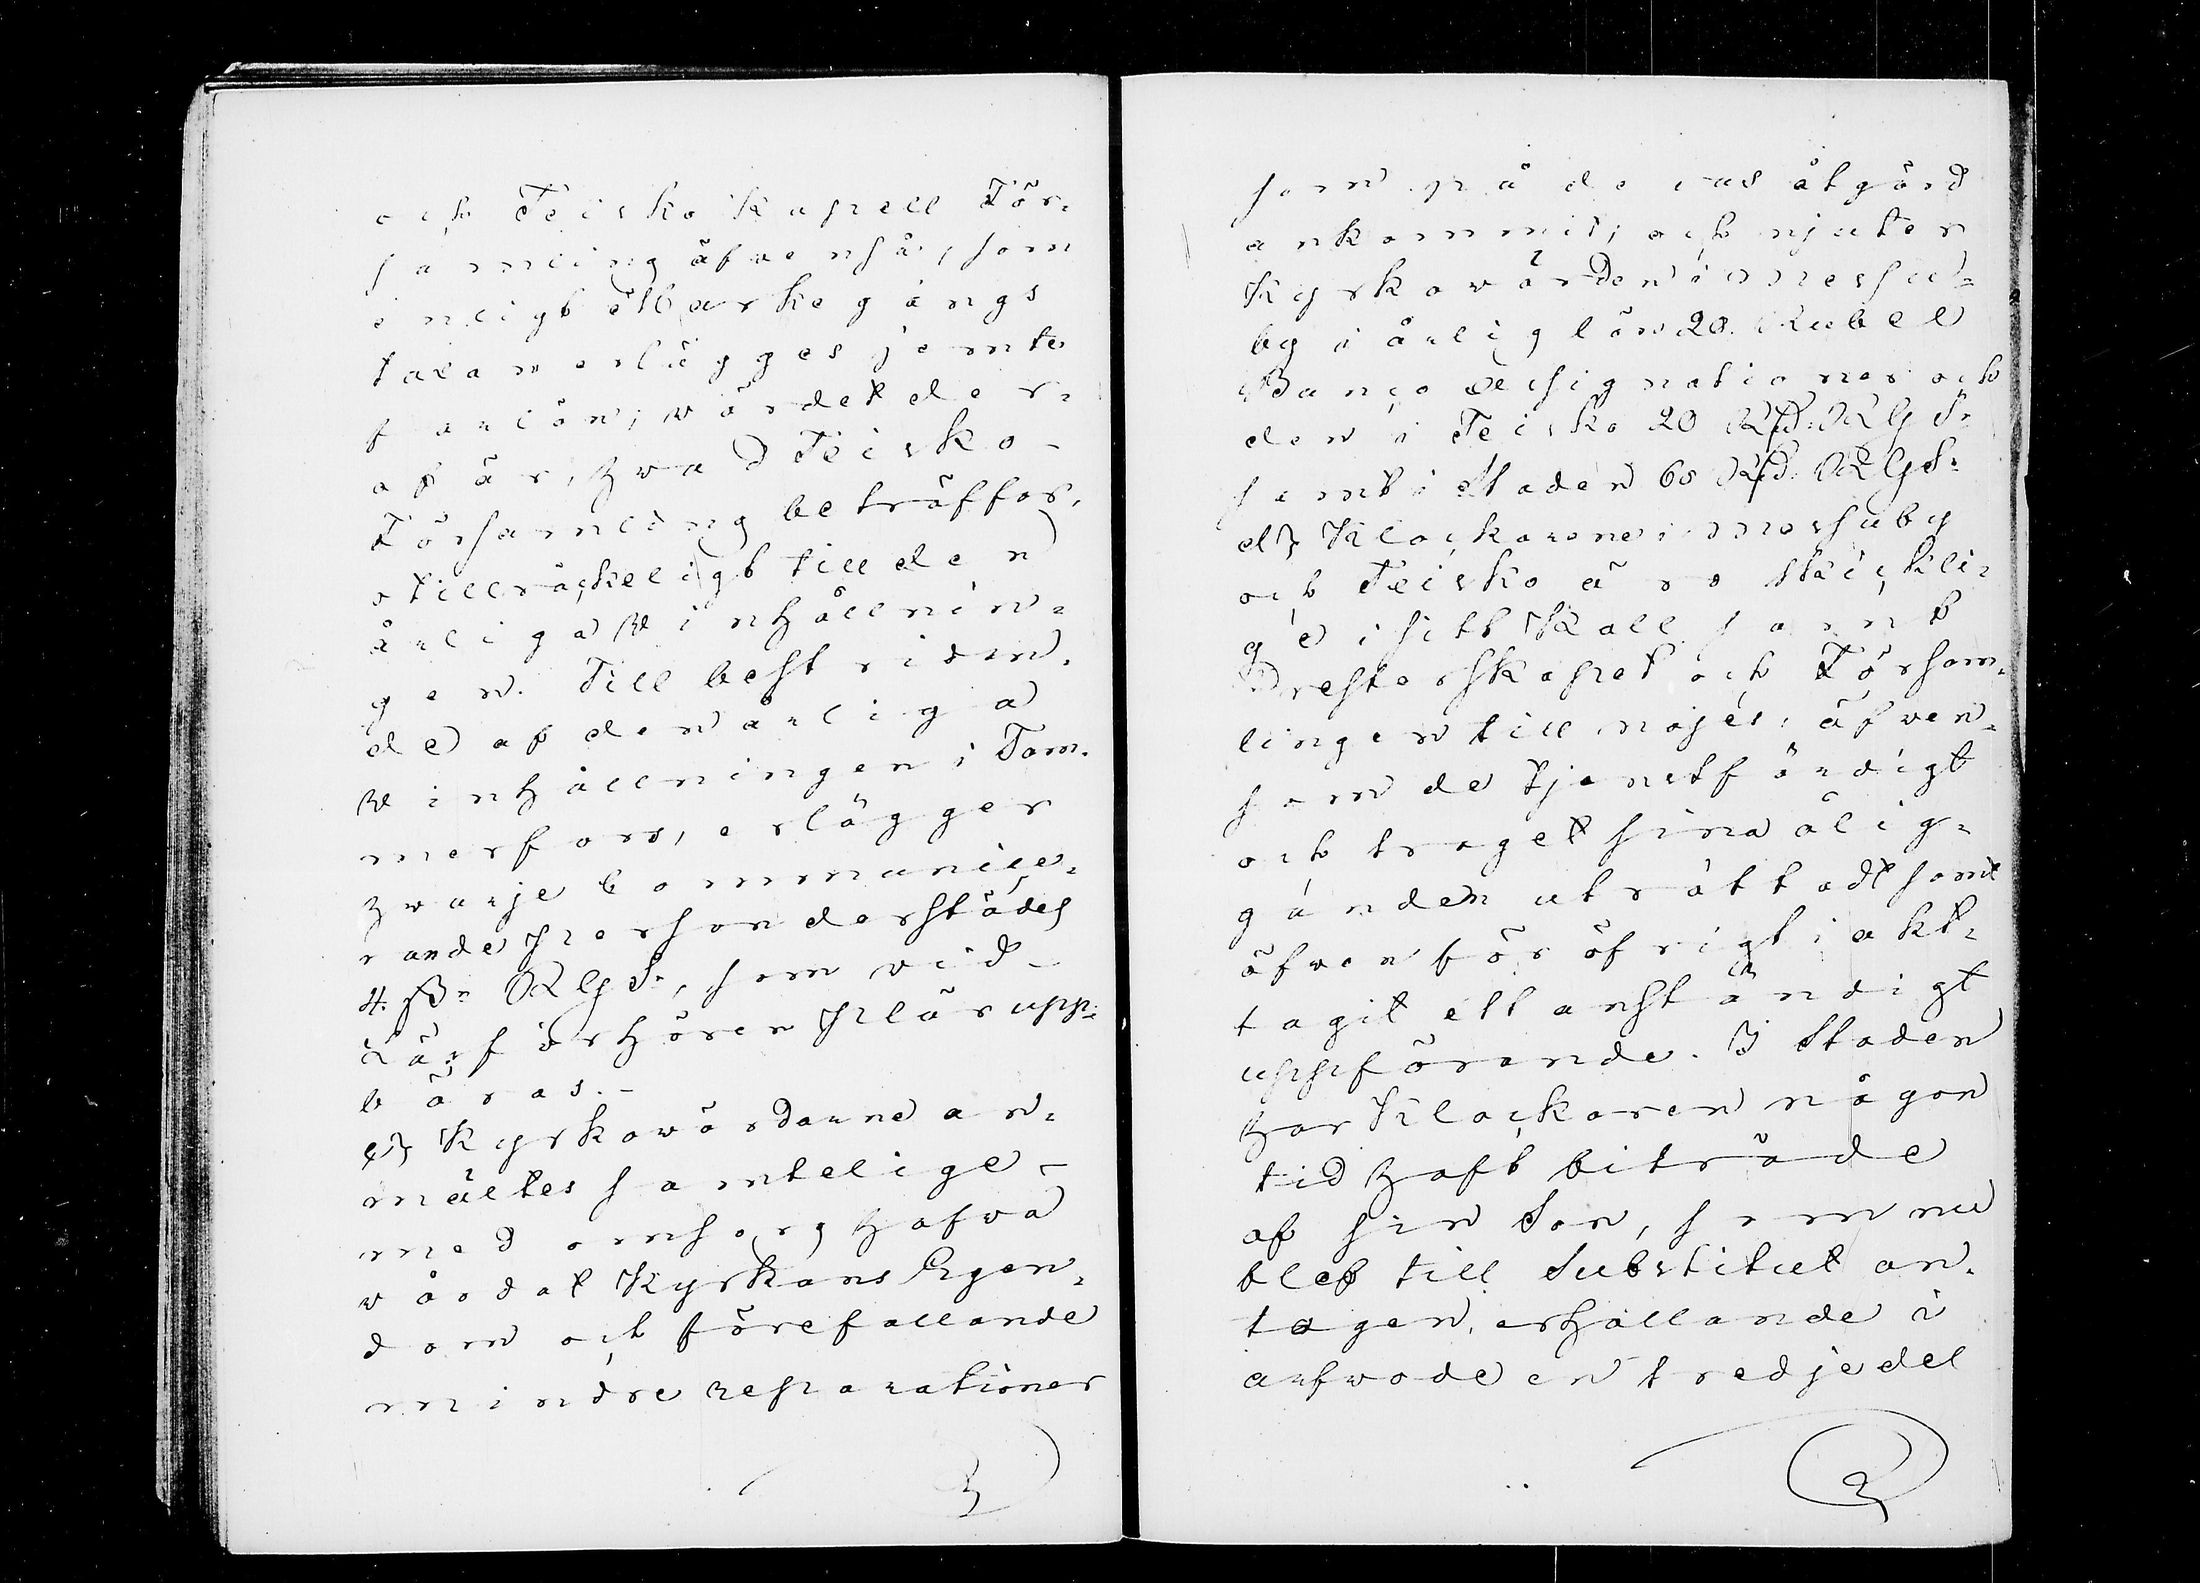 och Teisko Kapell För-
samling äfvenså, som
enligt Markegångs
taxan erlägges jemte
farlön; värdet der-
af är, hvad Teisko-
Församling beträffar,
otillräckeligt till den
årliga Vinhållnin-
gen. Till bestridan-
de af den årliga
Vinhållningen i Tam-
merfors, erlägger
hvarje Communice-
rande person derstädes
4. ß. RGS., som vid
Läsförhören plär upp-
bäras.-
c) Kyrkovärdarne an-
mältes samtelige
med omsorg hafva
vårdat Kyrkans Egen-
dom och förefallande
mindre reparationer
som på deras åtgärd
ankommit; och njuter
Kyrkovärden i Messu-
by i årlig lön 20. Rubel
Banco Assignationer och
den i Teisko 20 Rd. RGS.
samt i Staden 60 Rd. RGS.
d) Klockarene i Messuby
och Teisko äro skickli-
ge i sitt Kall samt
Presterskapet och Försam-
lingen till nöjes, äfven-
som de tjenstfärdigt
och troget sina ålig-
ganden uträttadt samt
äfven för öfrigt iakt-
tagit ett anständigt
uppförande. I Staden
har Klockaren någon
tid haft biträde
af sin Son, som nu
blef till Substitut an-
tagen, erhållande i
arfvode en tredjedel